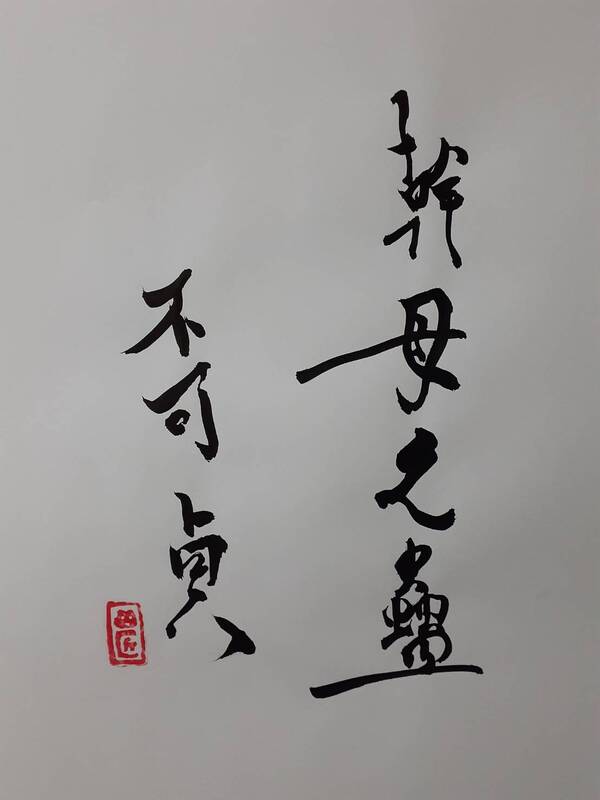 幹母之蠱
不可貞